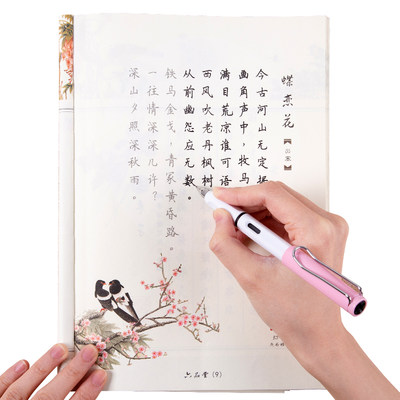 蝶恋花
出塞
今古河山无定据
画角声中，牧马
满目荒凉谁可语
西风吹老丹枫树
从前幽怨应无数。
铁马金戈，青冢黄昏路。
一往情深深几许？
深山夕照深秋雨。
六品堂（9）